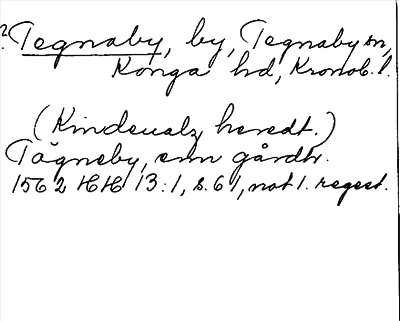 ? Tegnaby, by, Tegnaby sn,
Konga hd, Kronob. l.
(Kindeualz heredt.)
Tägneby, enn gårdh.
1562 HH 13:1, s. 61, not 1. regest.